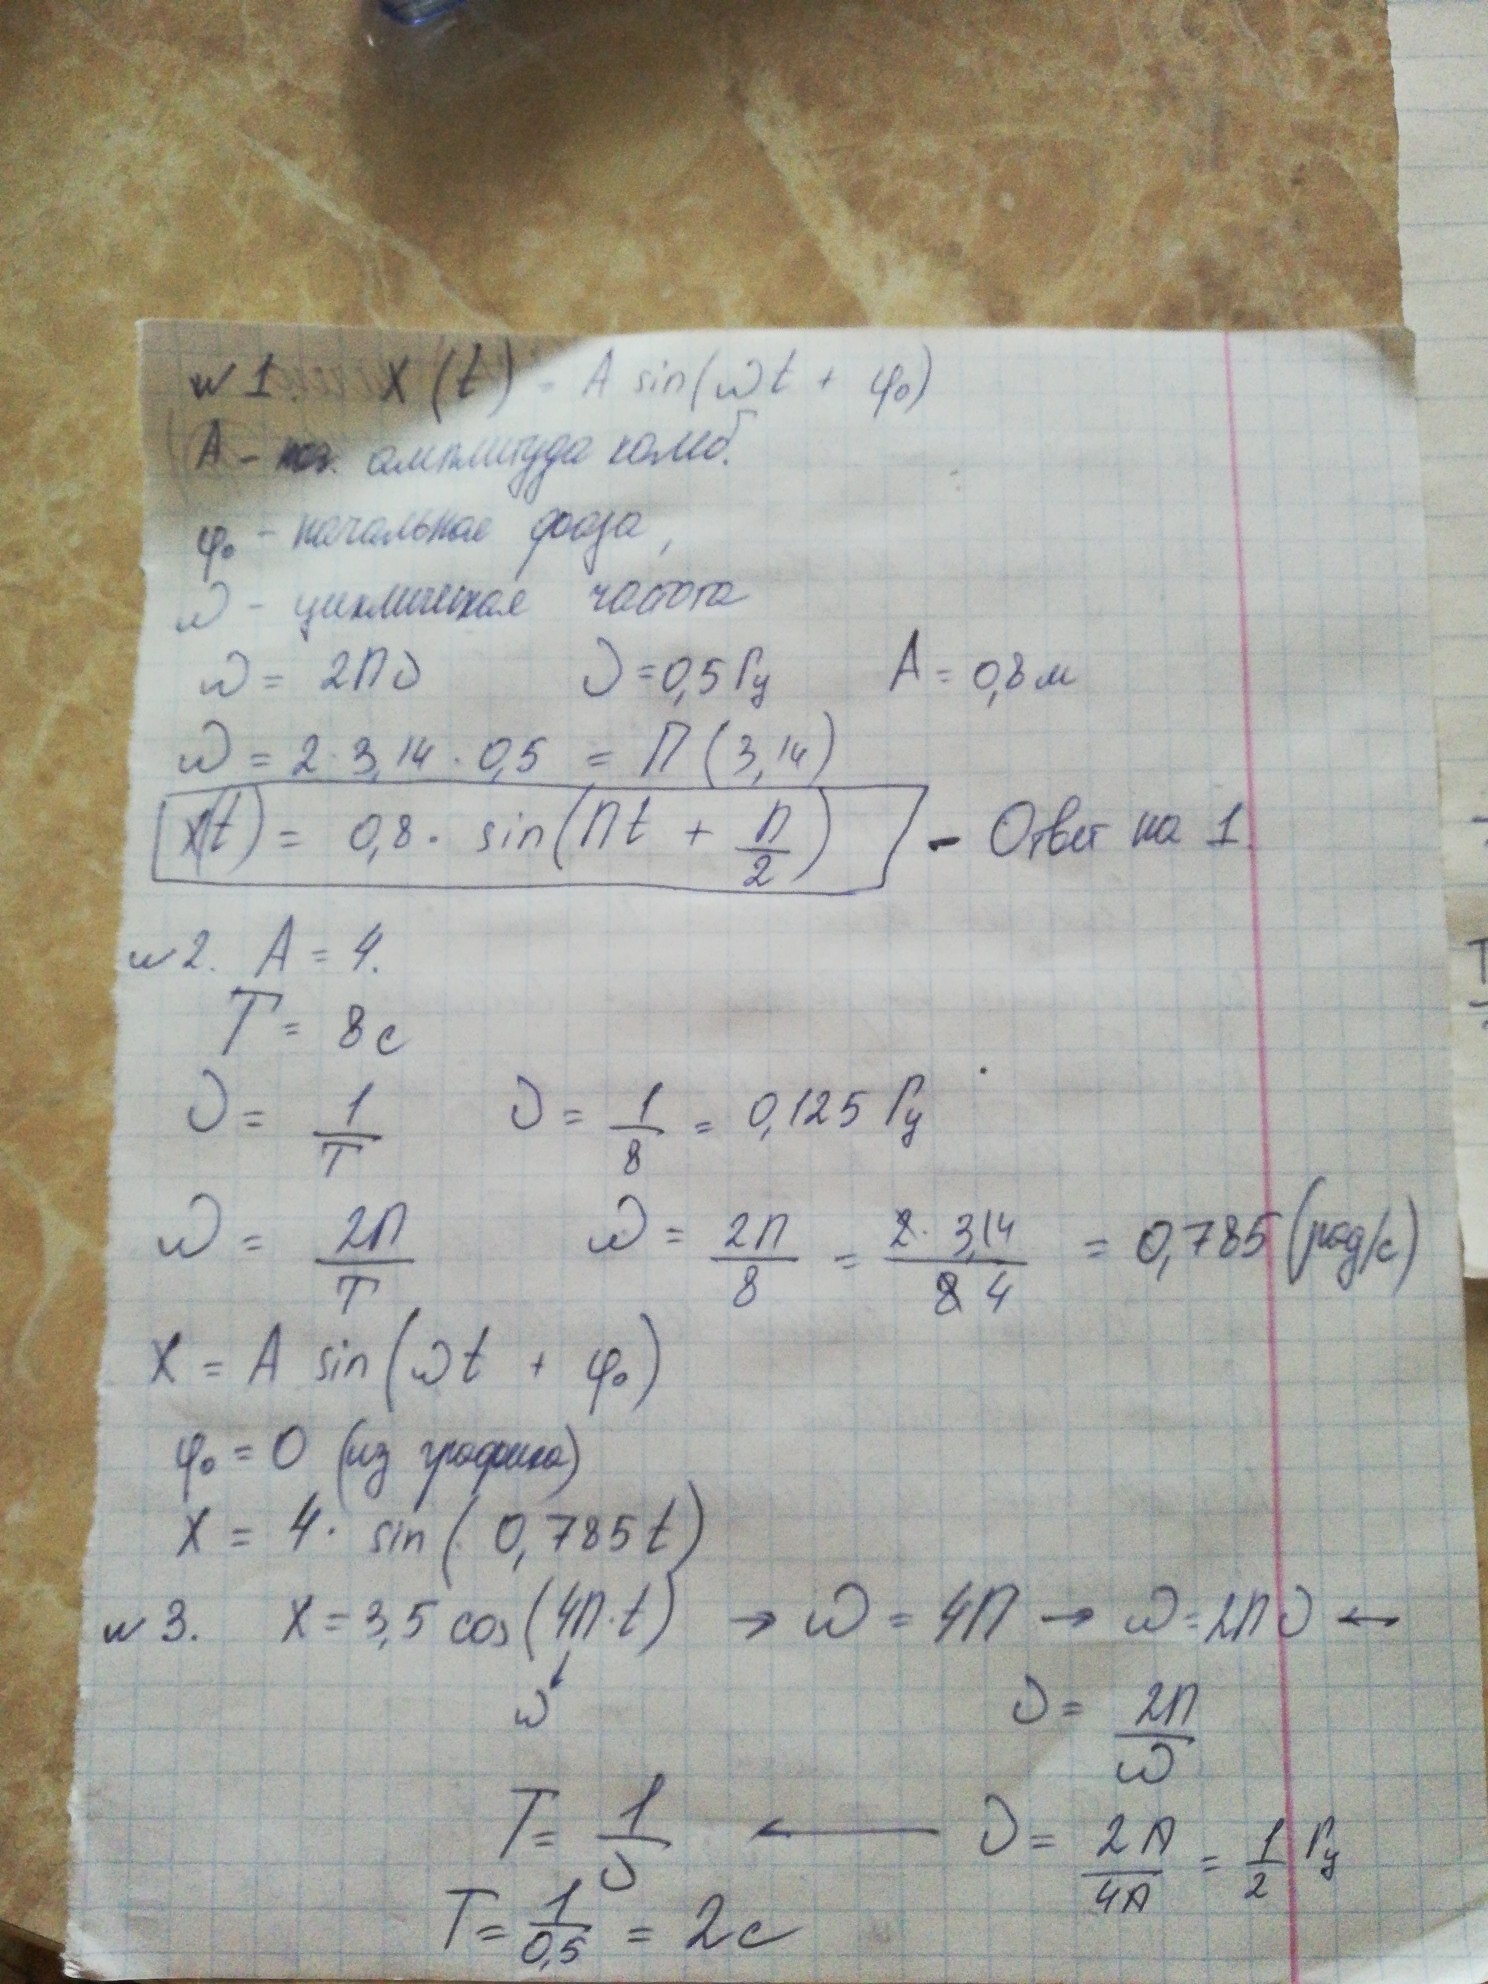 №1. x(t) = A sin(ωt + φ₀)
A - амплитуда колеб.
φ₀ - начальная фаза,
ω - циклическая частота
ω = 2πν ν = 0,5 Гц A = 0,8 м
ω = 2 · 3,14 · 0,5 = π (3,14)
x(t) = 0,8 · sin(πt + π/2) - Ответ на 1.
№2. A = 4.
T = 8 с
ν = 1/T ν = 1/8 = 0,125 Гц
ω = 2π/T ω = 2π/8 = 2 · 3,14/8 4 = 0,785 (рад/с)
X = A sin(ωt + φ₀)
φ₀ = 0 (из графика)
X = 4 · sin(0,785t)
№3. X = 3,5 cos(4π·t) → ω = 4π → ω = 2πν ←
ω ν = 2π/ω
T = 1/ν ← ν = 2π/4π = 1/2 Гц
T = 1/0,5 = 2 с